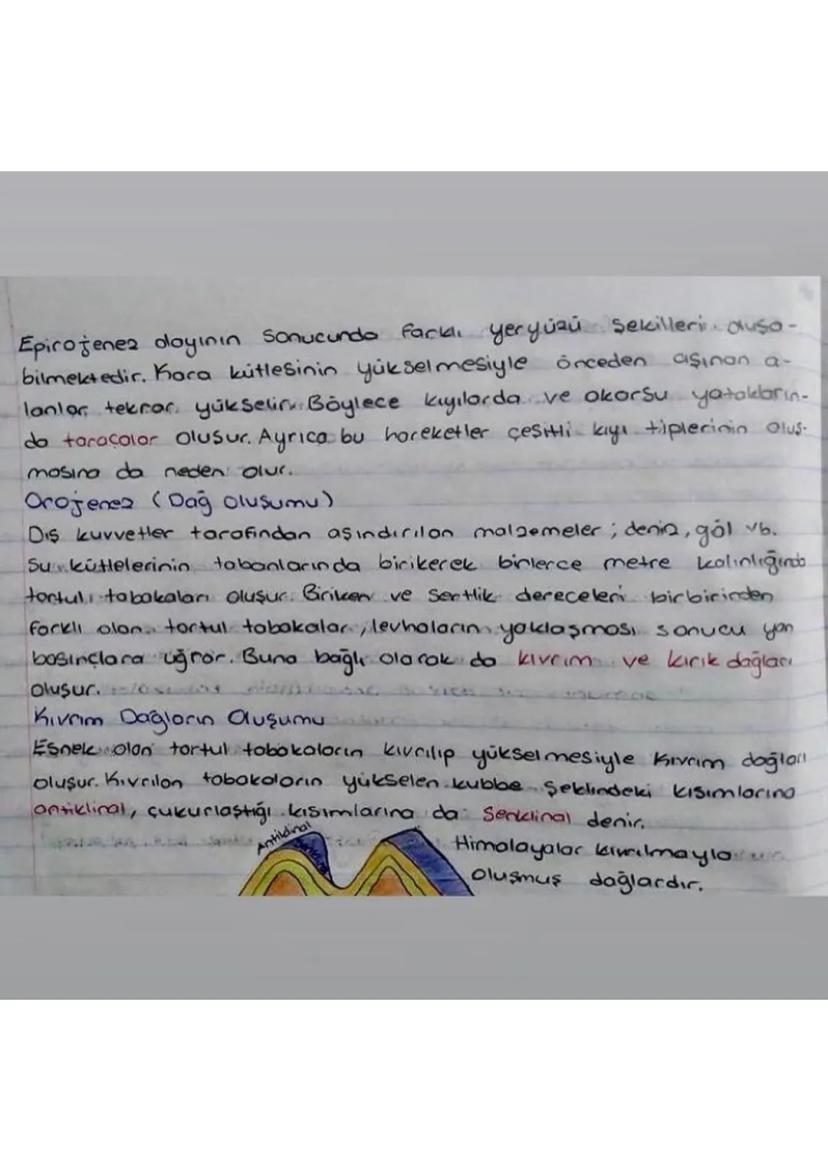 Epirojenez olayının sonucunda farklı yeryüzü şekilleri oluşa-
bilmektedir. Kara kütlesinin yükselmesiyle önceden aşınan a-
lanlar tekrar yükselir. Böylece kıyılarda ve akarsu yatakların-
da taraçalar oluşur. Ayrıca bu hareketler çeşitli kıyı tiplerinin oluş-
masına da neden olur.
Orojenez (Dağ oluşumu)
Dış kuvvetler tarafından aşındırılan malzemeler; deniz, göl vb.
su kütlelerinin tabanlarında birikerek binlerce metre kalınlığında
tortul tabakaları oluşur. Biriken ve sertlik dereceleri birbirinden
farklı olan tortul tabakalar, levhaların yaklaşması sonucu yan
basınçlara uğrar. Buna bağlı olarak da kıvrım ve kırık dağları
oluşur.
Kıvrım Dağların Oluşumu
Esnek olan tortul tabakaların kıvrılıp yükselmesiyle kıvrım dağları
oluşur. Kıvrılan tabakaların yükselen kubbe şeklindeki kısımlarına
antiklinal, çukurlaştığı kısımlarına da Senklinal denir.
Antiklinal
Himalayalar kıvrılmayla
oluşmuş dağlardır.